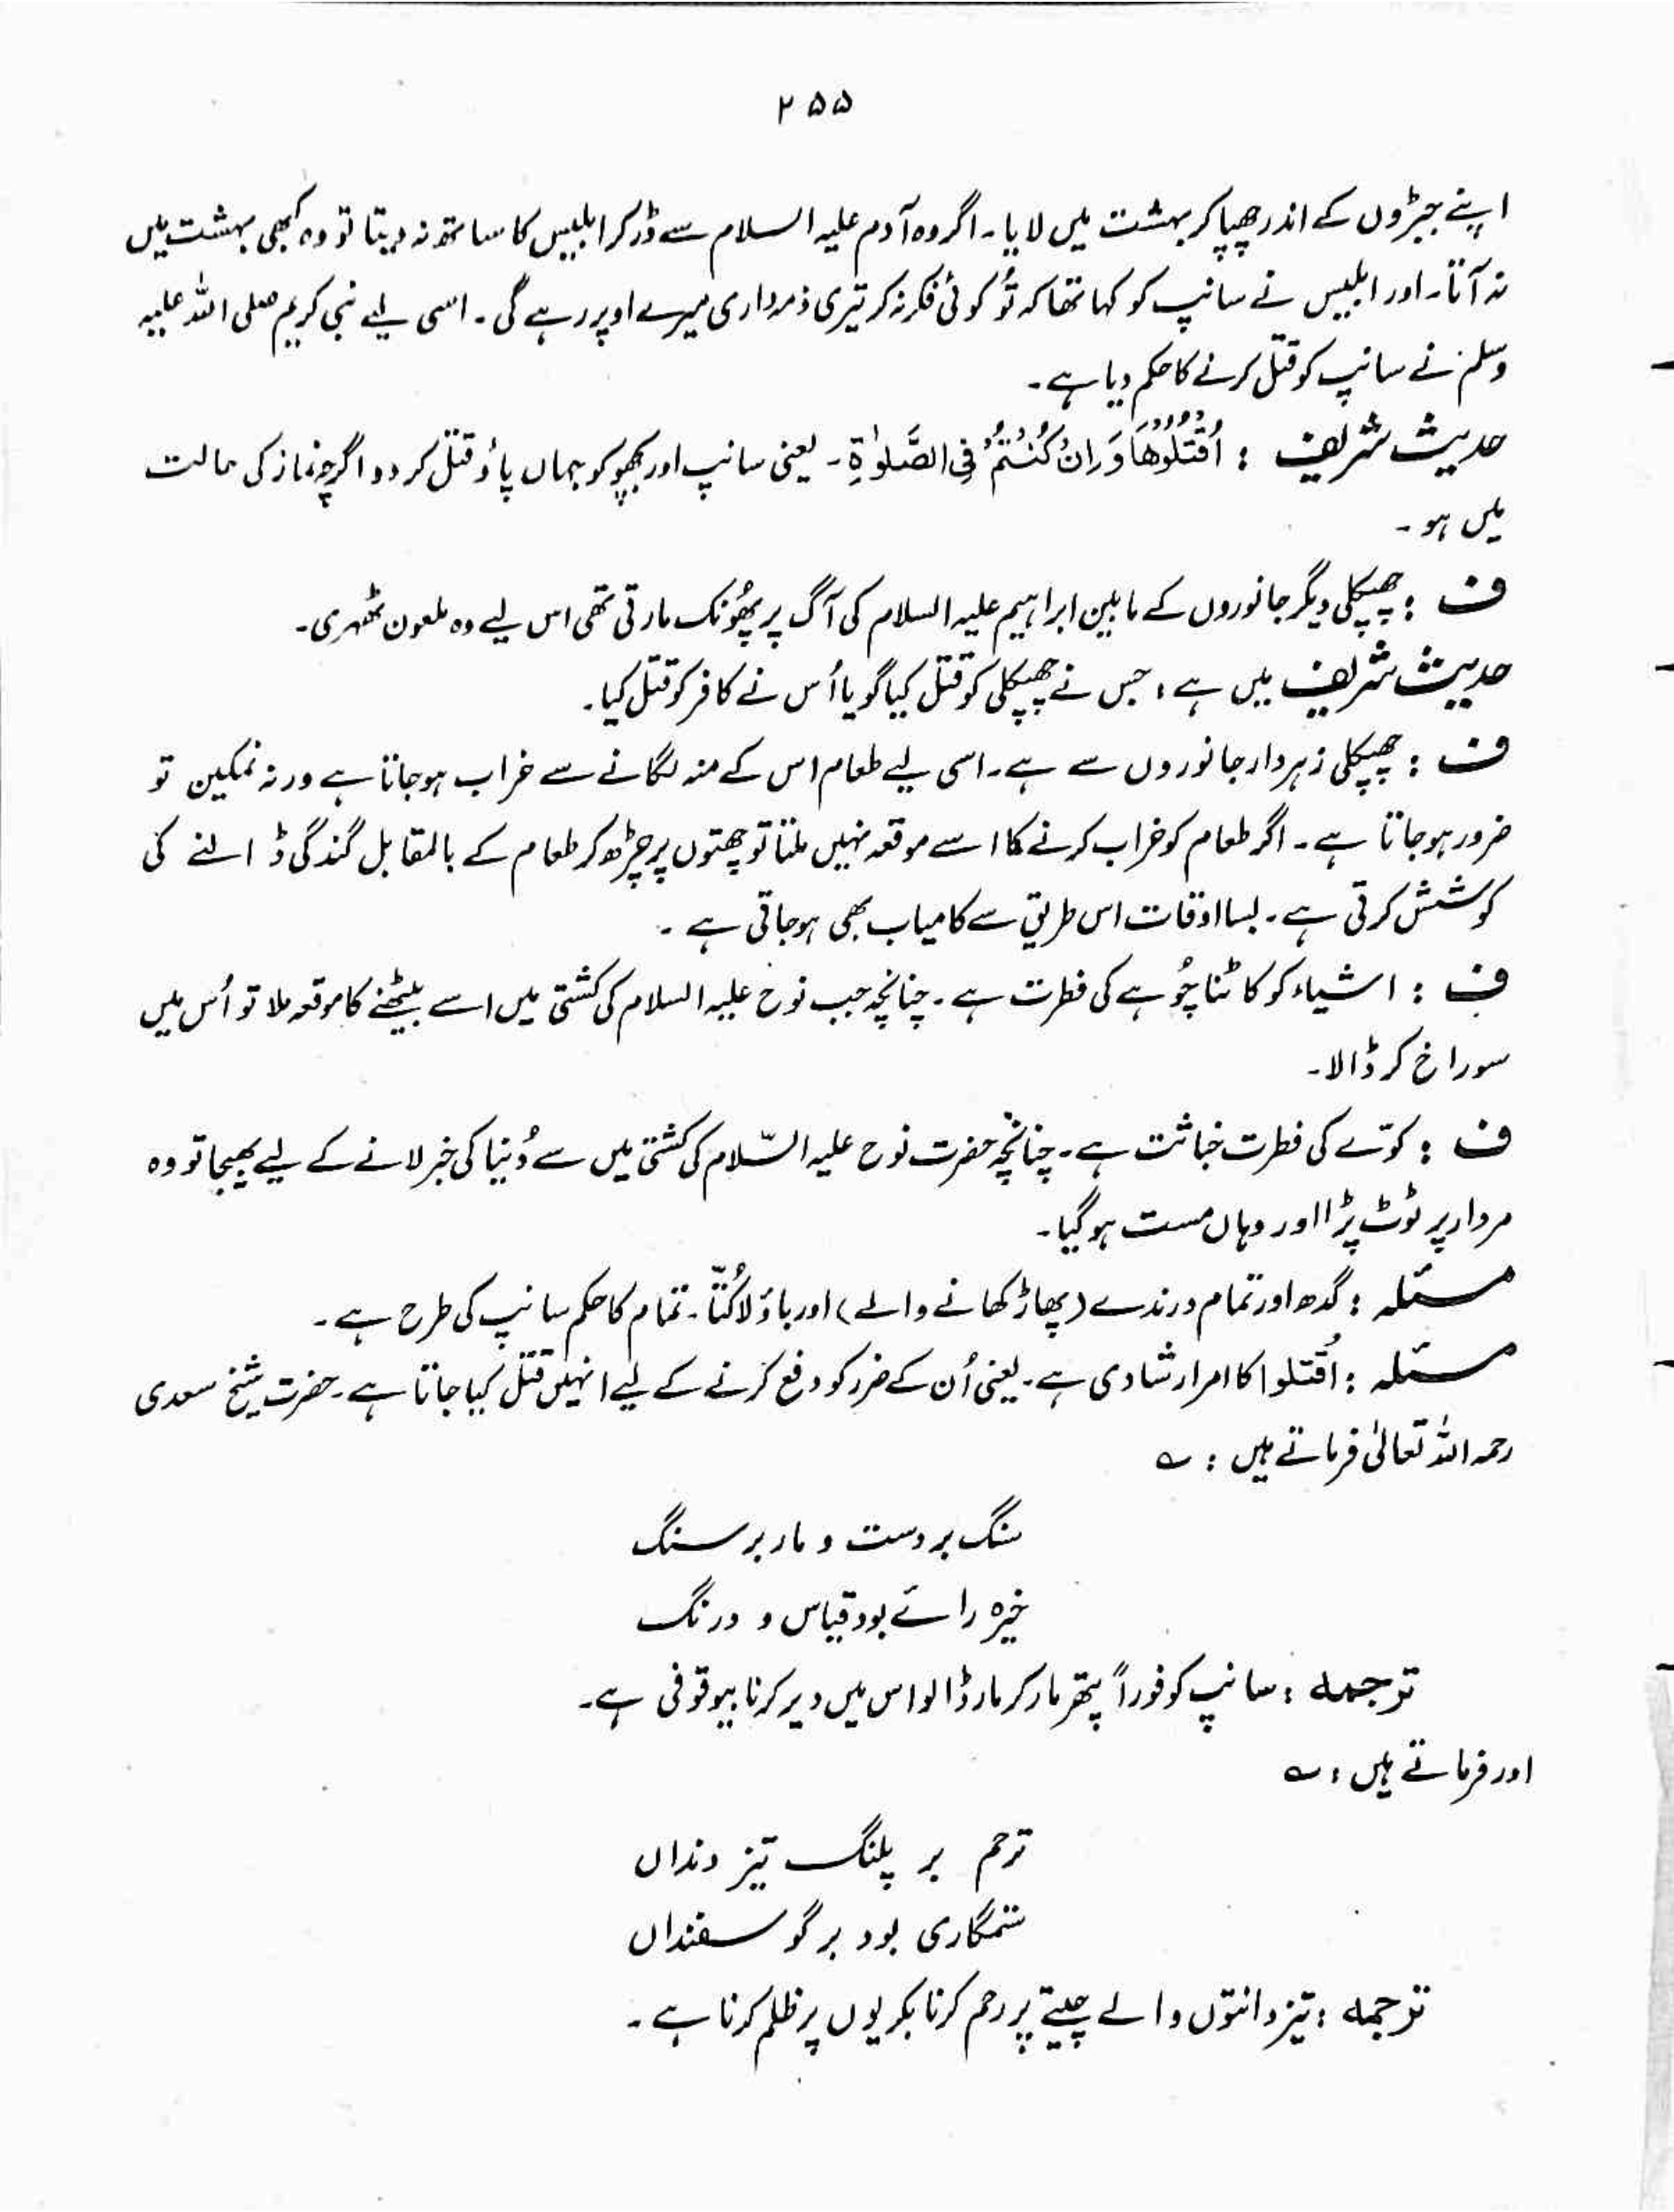 ۲۵۵
اپنے جبڑوں کے اندر چھپا کر بہشت میں لایا۔ اگر وہ آدم علیہ السلام سے ڈر کر ابلیس کا ساتھ نہ دیتا تو وہ کبھی بہشت میں
نہ آتا۔ اور ابلیس نے سانپ کو کہا تھا کہ تُو کوئی فکر نہ کر تیری ذمہ داری میرے اوپر رہے گی۔ اسی لیے نبی کریم صلی اللہ علیہ
وسلم نے سانپ کو قتل کرنے کا حکم دیا ہے۔
حدیث شریف : اُقْتُلُوْهَا وَاِنْ كُنْتُمْ فِی الصَّلٰوۃِ۔ یعنی سانپ اور بچھو کو جہاں پاؤ قتل کر دو اگرچہ نماز کی حالت
میں ہو۔
ف : چھپکلی دیگر جانوروں کے مابین ابراہیم علیہ السلام کی آگ پر پھُونک مارتی تھی اس لیے وہ ملعون ٹھہری۔
حدیث شریف میں ہے : جس نے چھپکلی کو قتل کیا گویا اُس نے کافر کو قتل کیا۔
ف : چھپکلی زہردار جانوروں سے ہے۔ اسی لیے طعام اس کے منہ لگانے سے خراب ہو جاتا ہے ورنہ نمکین تو
ضرور ہو جاتا ہے۔ اگر طعام کو خراب کرنے کا اسے موقعہ نہیں ملتا تو چھتوں پر چڑھ کر طعام کے بالمقابل گندگی ڈالنے کی
کوشش کرتی ہے۔ بسا اوقات اس طریق سے کامیاب بھی ہو جاتی ہے۔
ف : اشیاء کو کاٹنا چُوہے کی فطرت ہے۔ چنانچہ جب نوح علیہ السلام کی کشتی میں اسے بیٹھنے کا موقعہ ملا تو اُس میں
سوراخ کر ڈالا۔
ف : کوّے کی فطرت خباثت ہے۔ چنانچہ حضرت نوح علیہ السّلام کی کشتی میں سے دُنیا کی خبر لانے کے لیے بھیجا تو وہ
مردار پر ٹوٹ پڑا اور وہاں مست ہو گیا۔
مسئلہ : گدھ اور تمام درندے (پھاڑ کھانے والے) اور باؤلا کُتّا۔ تمام کا حکم سانپ کی طرح ہے۔
مسئلہ : اُقتلوا کا امر ارشادی ہے۔ یعنی اُن کے ضرر کو دفع کرنے کے لیے انہیں قتل کیا جاتا ہے۔ حضرت شیخ سعدی
رحمہ اللہ تعالیٰ فرماتے ہیں : ؎
سنگ بر دست و مار بر سنگ
خیرہ رائے بود قیاس و درنگ
ترجمہ : سانپ کو فوراً پتھر مار کر مار ڈالو اس میں دیر کرنا بیوقوفی ہے۔
اور فرماتے ہیں : ؎
ترحم بر پلنگ تیز دنداں
ستمگاری بود بر گوسفنداں
ترجمہ : تیز دانتوں والے چیتے پر رحم کرنا بکریوں پر ظلم کرنا ہے۔